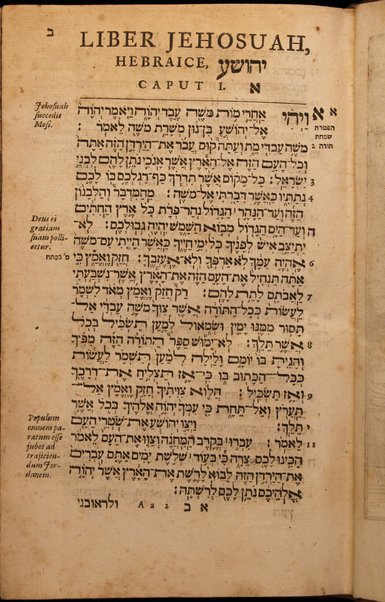 ב
LIBER JEHOSUAH,
HEBRAICE, יהושע
CAPUT I. א
Jehosuah
succedit
Mosi.
א א
הפטרת
שמחת
תורה
ויהי אחרי מות משה עבד יהוה ויאמר יהוה
אל־יהושע בן־נון משרת משה לאמר׃
2 משה עבדי מת ועתה קום עבר את־הירדן הזה אתה
וכל־העם הזה אל־הארץ אשר אנכי נתן להם לבני
3 ישראל׃ כל־מקום אשר תדרך כף־רגלכם בו לכם
4 נתתיו כאשר דברתי אל־משה׃ מהמדבר והלבנון
הזה ועד־הנהר הגדול נהר־פרת כל ארץ החתים
Deus ei
gratiam
suam polli-
cetur.
ועד־הים הגדול מבוא השמש יהיה גבולכם׃ לא־
יתיצב איש לפניך כל ימי חייך כאשר הייתי עם־משה
6 אהיה עמך לא ארפך ולא אעזבך׃ חזק ואמץ כי
אתה תנחיל את־העם הזה את־הארץ אשר נשבעתי
7 לאבותם לתת להם׃ רק חזק ואמץ מאד לשמר
לעשות ככל־התורה אשר צוך משה עבדי אל־
תסור ממנו ימין ושמאול למען תשכיל בכל
8 אשר תלך׃ לא־ימוש ספר התורה הזה מפיך
והגית בו יומם ולילה למען תשמר לעשות
ככל־הכתוב בו כי־אז תצליח את־דרכך
9 ואז תשכיל׃ הלוא צויתיך חזק ואמץ אל־
תערץ ואל־תחת כי עמך יהוה אלהיך בכל אשר
Populum
omnem pa-
ratum esse
jubet ad
trajicien-
dum Jor-
danem.
תלך׃ ויצו יהושע את־שטרי העם
11 לאמר׃ עברו בקרב המחנה וצוו את־העם לאמר
הכינו לכם צדה כי בעוד שלשת ימים אתם עברים
את־הירדן הזה לבוא לרשת את־הארץ אשר יהוה
אלהיכם נתן לכם לרשתה׃
א ב A a 2 ולראובני